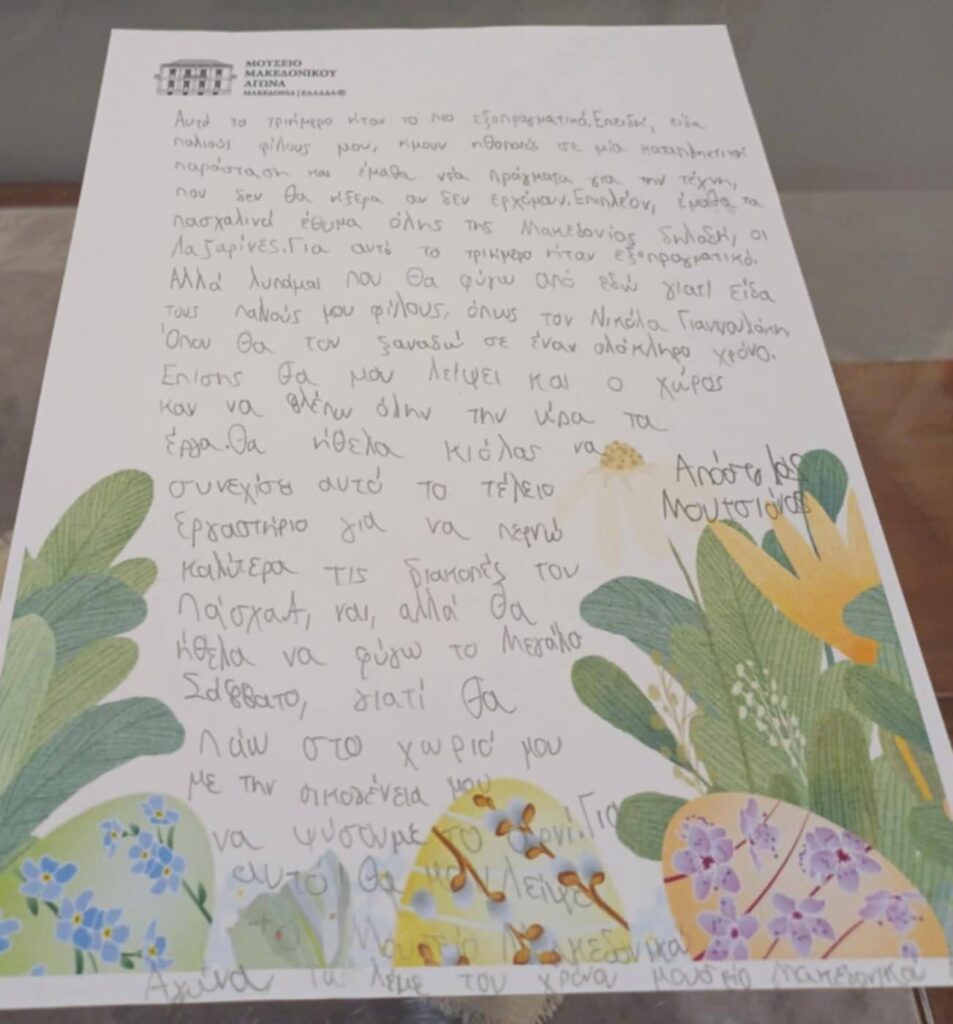 ΜΟΥΣΕΙΟ
ΜΑΚΕΔΟΝΙΚΟΥ
ΑΓΩΝΑ
ΜΑΚΕΔΟΝΙΑ | ΕΛΛΑΔΑ
Αυτό το τριήμερο ήταν το πιο εξοπραγματικό. Επειδή, είδα
παλιούς φίλους μου, ήμουν ηθοποιός σε μία καταπληκτική
παράσταση και έμαθα νέα πράγματα για την τέχνη,
που δεν θα ήξερα αν δεν ερχόμαν. Επιπλέον, έμαθα τα
πασχαλινά έθιμα όλης της Μακεδονίας δηλαδή, οι
Λαζαρίνες. Για αυτό το τριήμερο ήταν εξοπραγματικό.
Αλλά λυπάμαι που θα φύγω από εδώ γιατί είδα
τους παλιούς μου φίλους, όπως τον Νικόλα
Όπου θα τον ξαναδώ σε έναν ολόκληρο χρόνο.
Επίσης θα μου λείψει και ο χώρος
και να βλέπω όλην την ώρα τα
έργα. Θα ήθελα κιόλας να
συνεχίσω αυτό το τέλειο
εργαστήριο για να περνώ
καλύτερα τις διακοπές του
Πάσχα, ναι, αλλά θα
ήθελα να φύγω το Μεγάλο
Σάββατο, γιατί θα
πάω στο χωριό μου
με την οικογένεια μου
να ψύσουμε το αρνί. Για
αυτό θα μου λείψει
το Μουσείο Μακεδονικά
Αγώνα τα λέμε του χρόνα μουσείο Μακεδονικά
Απόστολος
Μουτσιάνας